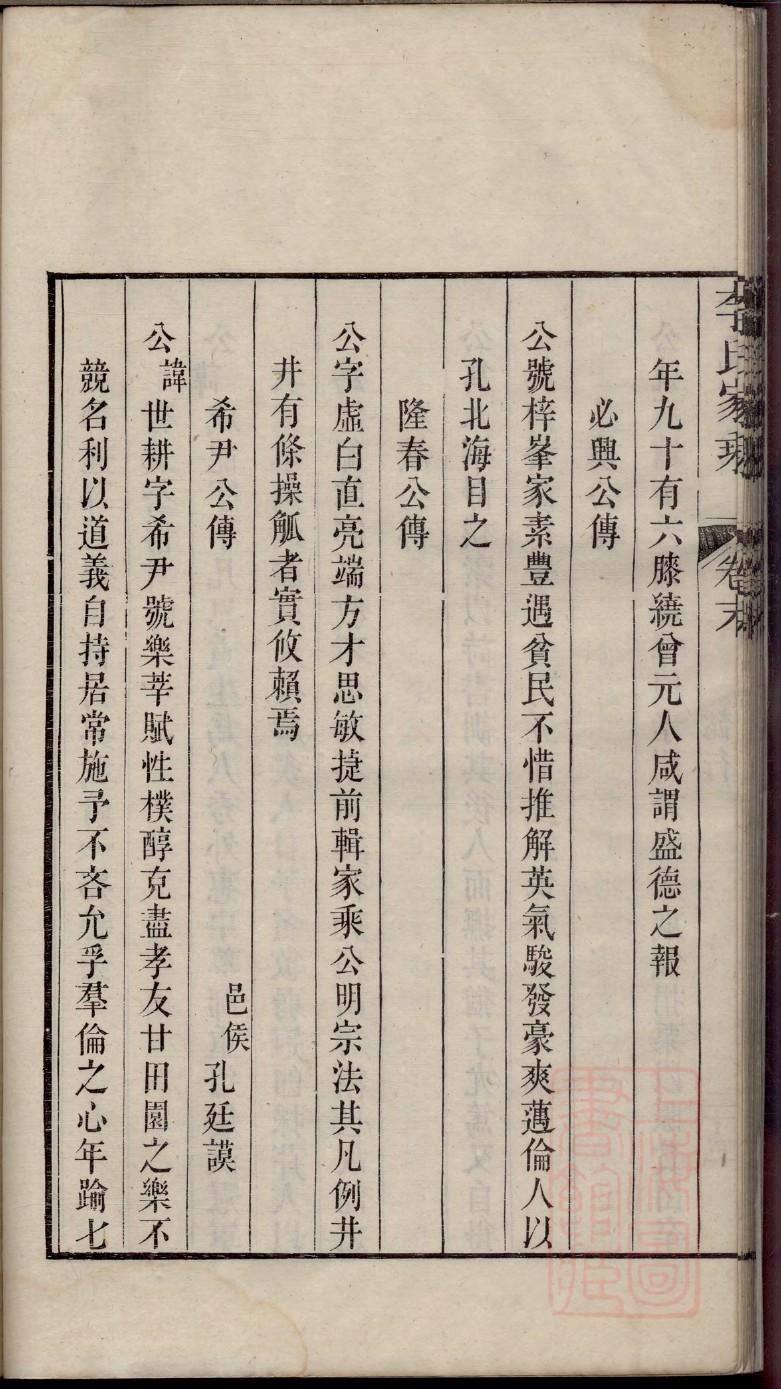 李氏家乘 卷末
年九十有六膝繞曾元人咸謂盛德之報
必興公傳
公號梓峯家素豐遇貧民不惜推解英氣駿發豪爽邁倫人以
孔北海目之
隆春公傳
公字虛白直亮端方才思敏捷前輯家乘公明宗法其凡例井
井有條操觚者實攸賴焉
希尹公傳 邑侯孔廷謨
公諱世耕字希尹號樂莘賦性樸醇克盡孝友甘田園之樂不
競名利以道義自持居常施予不吝允孚羣倫之心年踰七